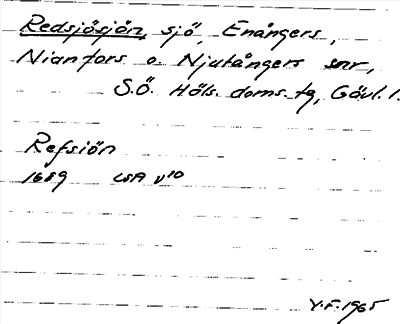 Redsjösjön, sjö, Enångers,
Nianfors o. Njutångers snr,
S.Ö. Häls. doms. tg, Gävl. l.
Refsiön
1689 LSA v10
Y.F. 1965